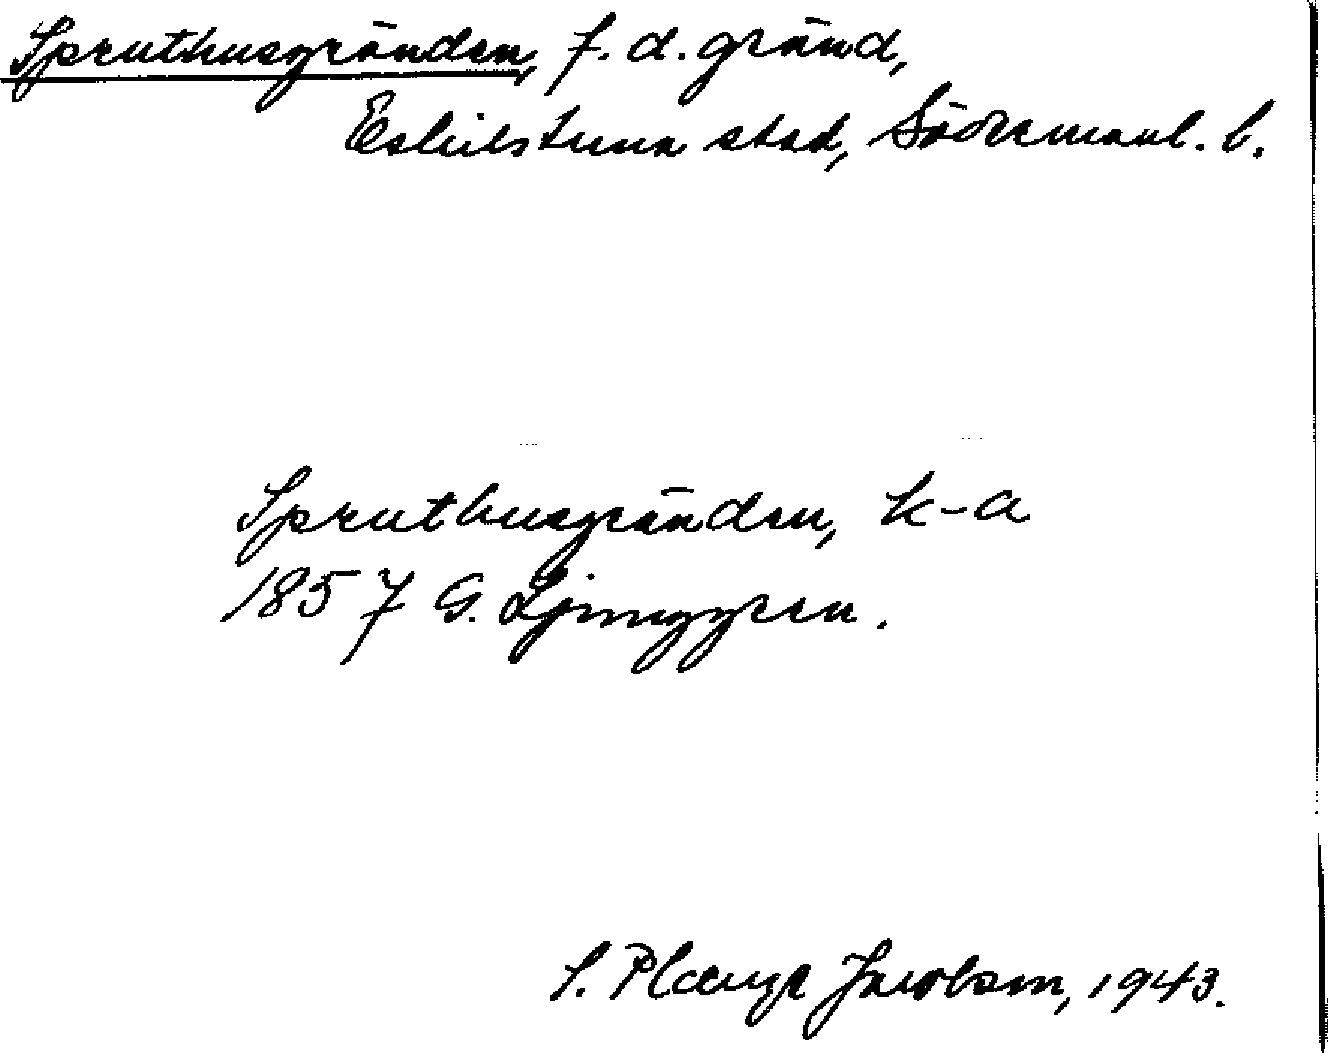 Spruthusgränden, f. d. gränd,
Eskilstuna stad, Södermanl. l.
Spruthusgränden, k-a
1857 G. Ljunggren.
S. Plænge Jacobson, 1943.